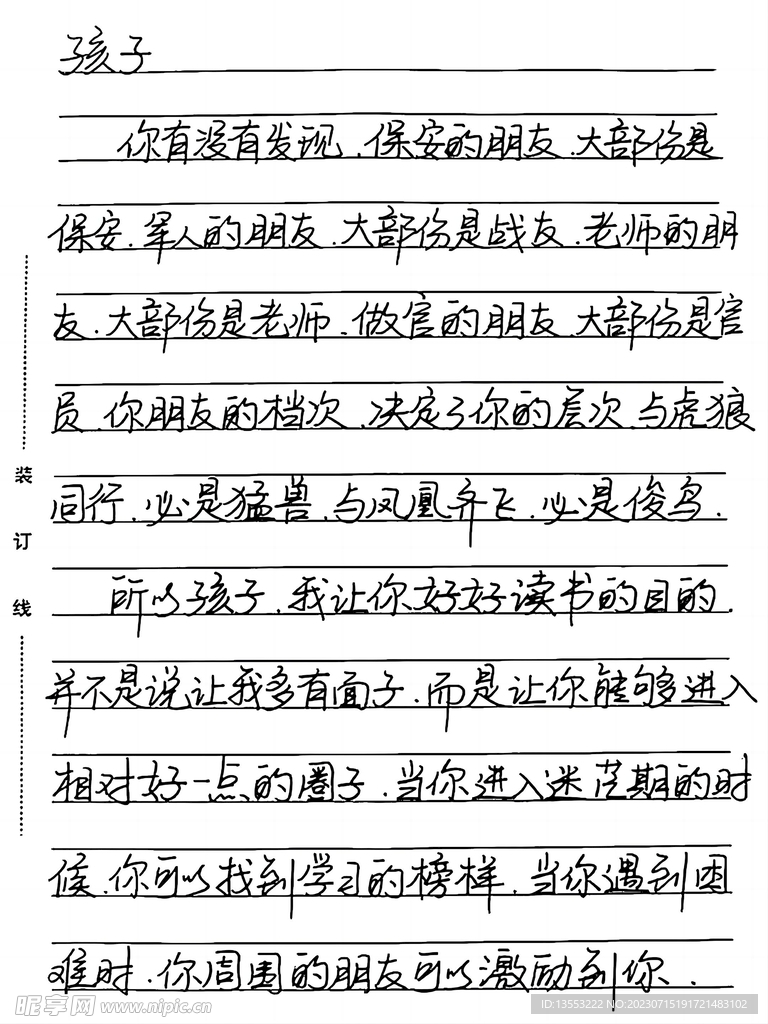 孩子
你有没有发现.保安的朋友.大部份是
保安.军人的朋友.大部份是战友.老师的朋
友.大部份是老师.做官的朋友.大部份是官
员.你朋友的档次.决定了你的层次.与虎狼
同行.必是猛兽.与凤凰齐飞.必是俊鸟.
所以孩子.我让你好好读书的目的.
并不是说让我多有面子.而是让你能够进入
相对好一点的圈子.当你进入迷茫期的时
候.你可以找到学习的榜样.当你遇到困
难时.你周围的朋友可以激励到你.
装
订
线
昵享网 www.nipic.cn
ID:13553222 NO:20230715191721483102